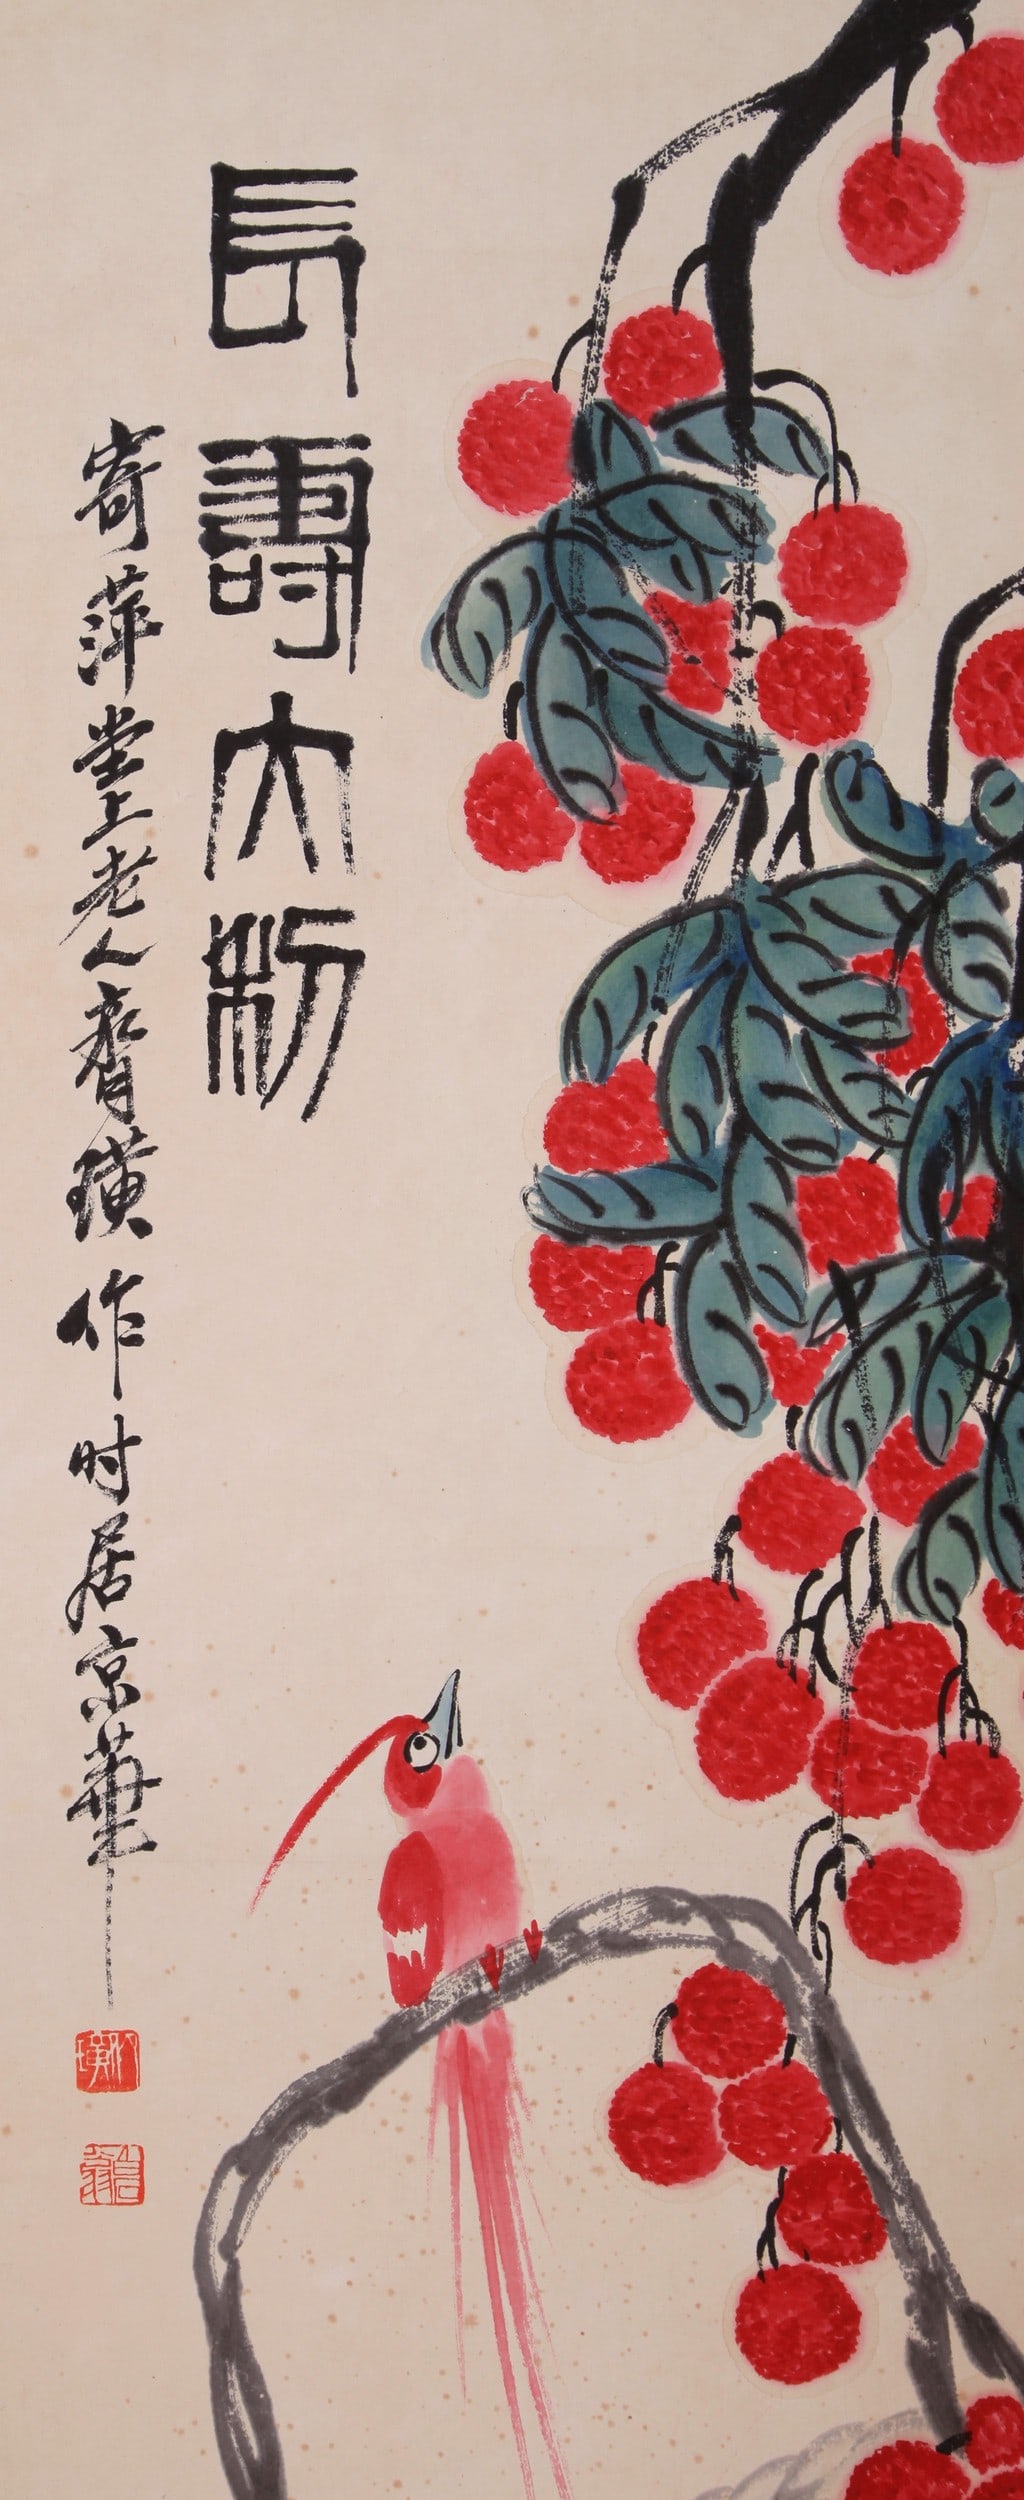 長壽大利
寄萍堂上老人齊璜作时居京華
白石翁